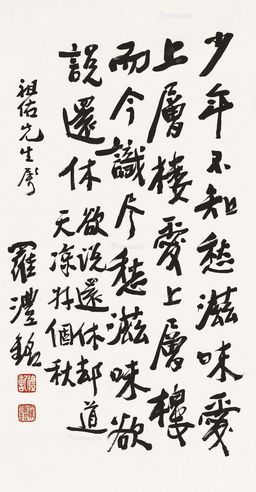 少年不知愁滋味愛
上層樓愛上層樓
而今識尽愁滋味欲
說還休
欲說還休却道
天涼好個秋
祖佑先生屬
羅澧銘